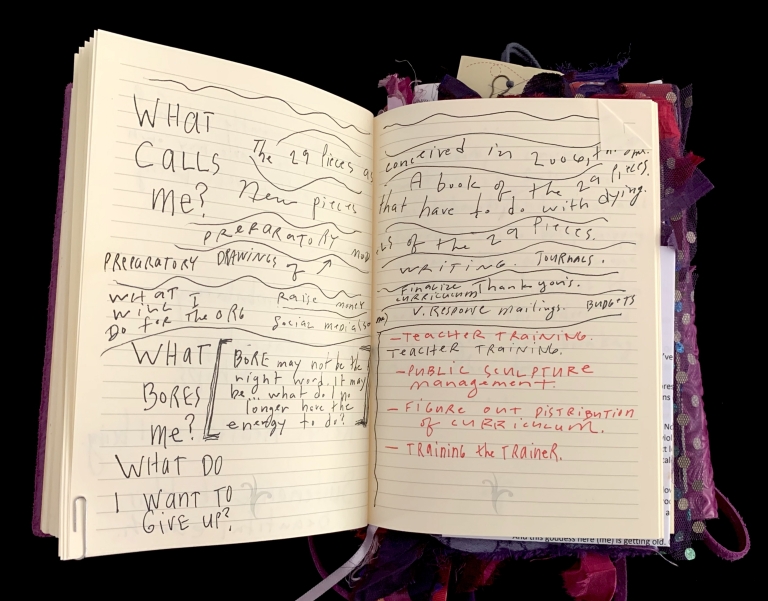 WHAT
CALLS
ME?
The 29 Pieces as
New pieces
PREPARATORY
PREPARATORY DRAWINGS of
WHAT I
WILL
DO FOR THE ORG
Raise money
Social media
WHAT
BORES
ME?
BORE may not be the
right word. It may
be... what do I no
longer have the
energy to do?
WHAT DO
I WANT TO
GIVE UP?
conceived in
A book of the 29 Pieces.
that have to do with dying.
LS of the 29 Pieces.
WRITING. JOURNALS.
Finalize
curriculum
Thank you's.
V. Response mailings. BUDGETS
- TEACHER TRAINING.
TEACHER TRAINING.
- PUBLIC SCULPTURE
management.
- FIGURE OUT DISTRIBUTION
of CURRICULUM.
- TRAINING the TRAINER.
And this goddess here (me) is getting old.